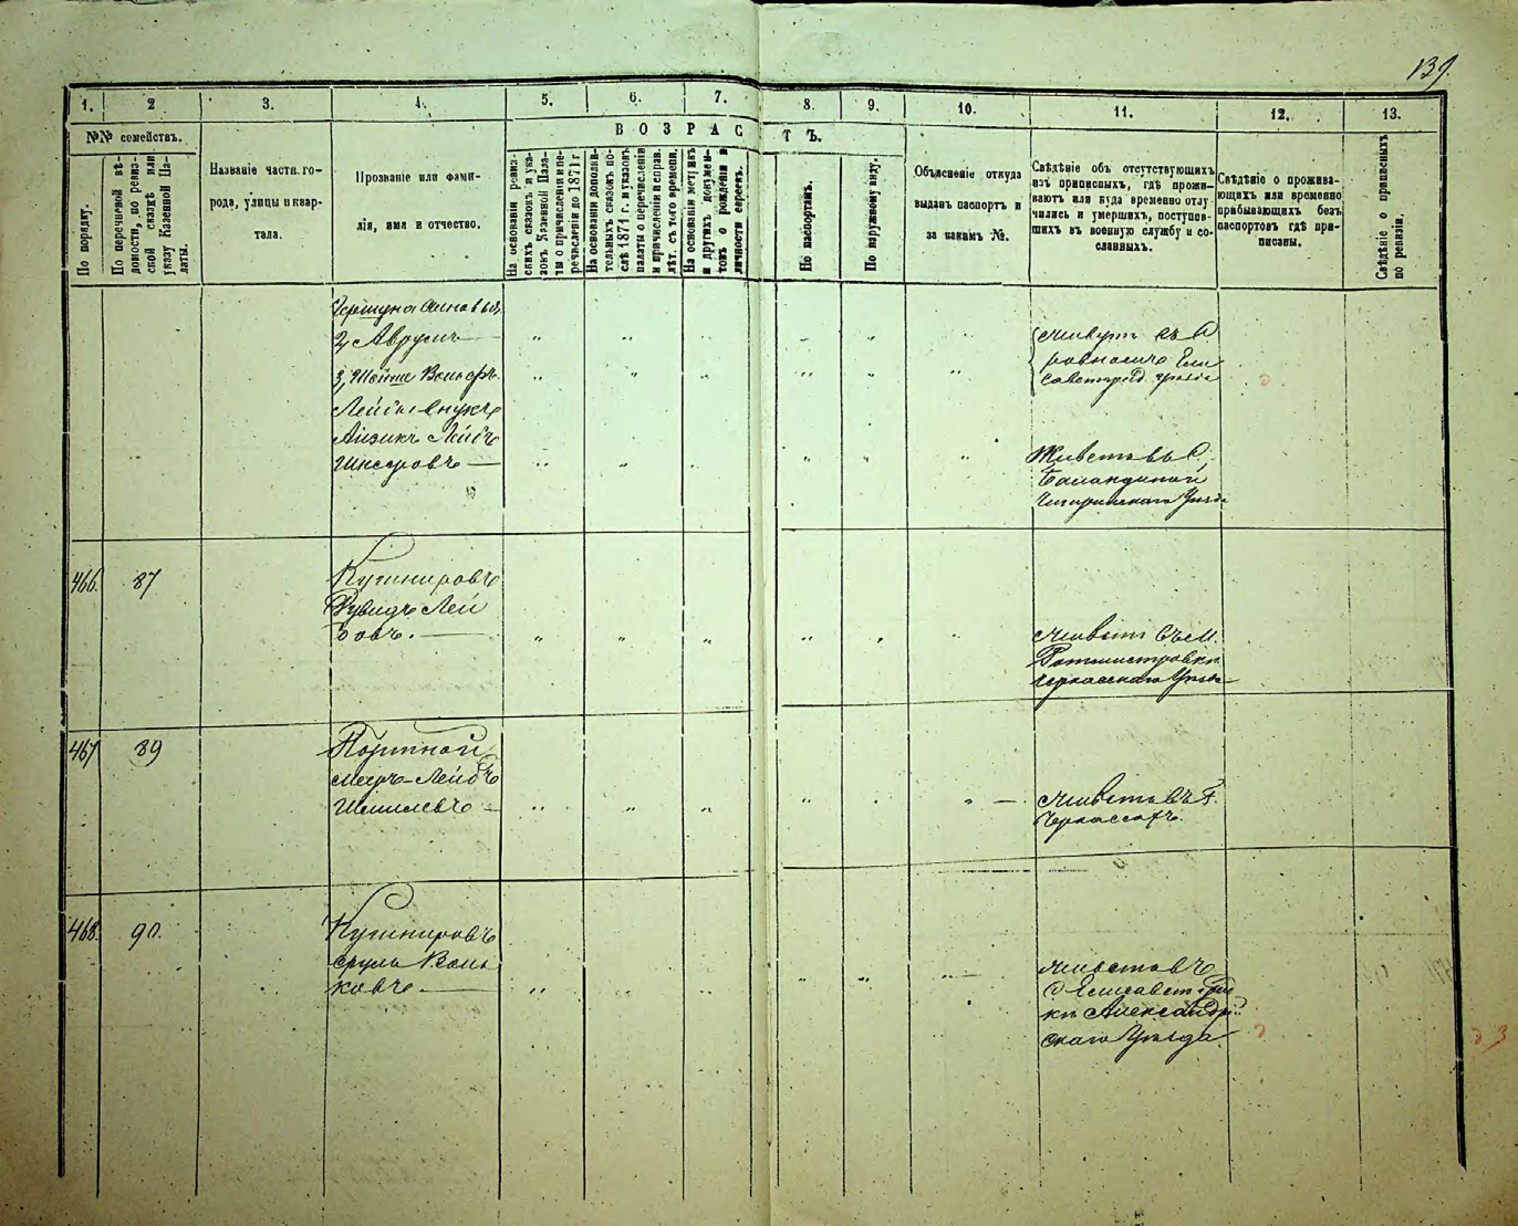 139.
1. 2 3. 4. 5. 6. 7. 8. 9. 10. 11. 12. 13.
№№ семействъ.
ВОЗРАСТЪ.
По порядку.
По перечневой вѣ-
домости, по ревиз-
ской сказкѣ или
указу Казенной Па-
латы.
Названіе части го-
рода, улицы и квар-
тала.
Прозваніе или фами-
лія, имя и отчество.
На основаніи ревиз-
скихъ сказокъ и ука-
зовъ Казенной Пала-
ты о причисленіи и пе-
речисленіи до 1871 г
На основаніи дополни-
тельныхъ сказокъ по-
слѣ 1871 г. и указовъ
палаты о перечисленіи
и причисленіи и справ.
лѣт. съ того времени.
На основаніи метрикъ
и другихъ докумен-
товъ о рожденіи и
личности евреевъ.
По паспортамъ.
По наружному виду.
Объясненіе откуда
выданъ паспортъ и
за какимъ №.
Свѣдѣніе объ отсутствующихъ
изъ приписныхъ, гдѣ прожи-
ваютъ или куда временно отлу
чились и умершихъ, поступив-
шихъ въ военную службу и со-
сланныхъ.
Свѣдѣніе о прожива-
ющихъ или временно
прибывающихъ безъ
паспортовъ гдѣ при-
писаны.
Свѣдѣніе о приписныхъ
по ревизіи.
Гершуна сыновья,
2, Аврумъ
3, Шойше Вольфъ.
Лейбы внукъ
Айзикъ Лейбъ
Живутъ въ С
Елисаветград. уѣзда
Живетъ въ С.
Баландиной
Чигиринскаго Уѣзда
466. 87
Кушнировъ
Рувидъ Лей
бовъ.
Живетъ въ М.
Ротмистровкѣ
Черкасскаго Уѣзда
467 89
Портной
Мееръ-Лейбъ
Шмилевъ
Живетъ въ Г.
Черкассахъ.
468. 90.
Кушнировъ
Сруль Воль
ковъ.
Живетъ въ
кѣ Александрій
скаго Уѣзда